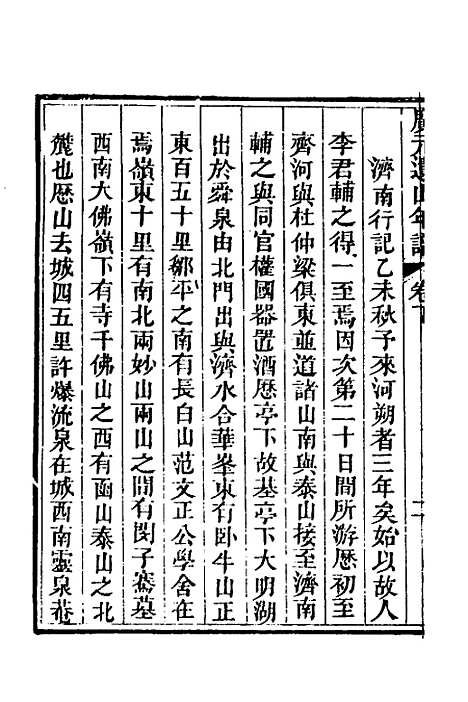 廣元遺山年譜 卷下
濟南行記乙未秋予來河朔者三年矣始以故人
李君輔之得一至焉因次第二十日間所游歷初至
齊河與杜仲梁俱東並道諸山南與泰山接至濟南
輔之與同官權國器置酒歷亭下故基亭下大明湖
出於舜泉由北門出與濟水合華峯東有卧牛山正
東百五十里鄒平之南有長白山范文正公學舍在
焉嶺東十里有南北兩妙山兩山之間有閔子騫墓
西南大佛嶺下有寺千佛山之西有函山泰山之北
麓也歷山去城四五里許爆流泉在城西南靈泉菴